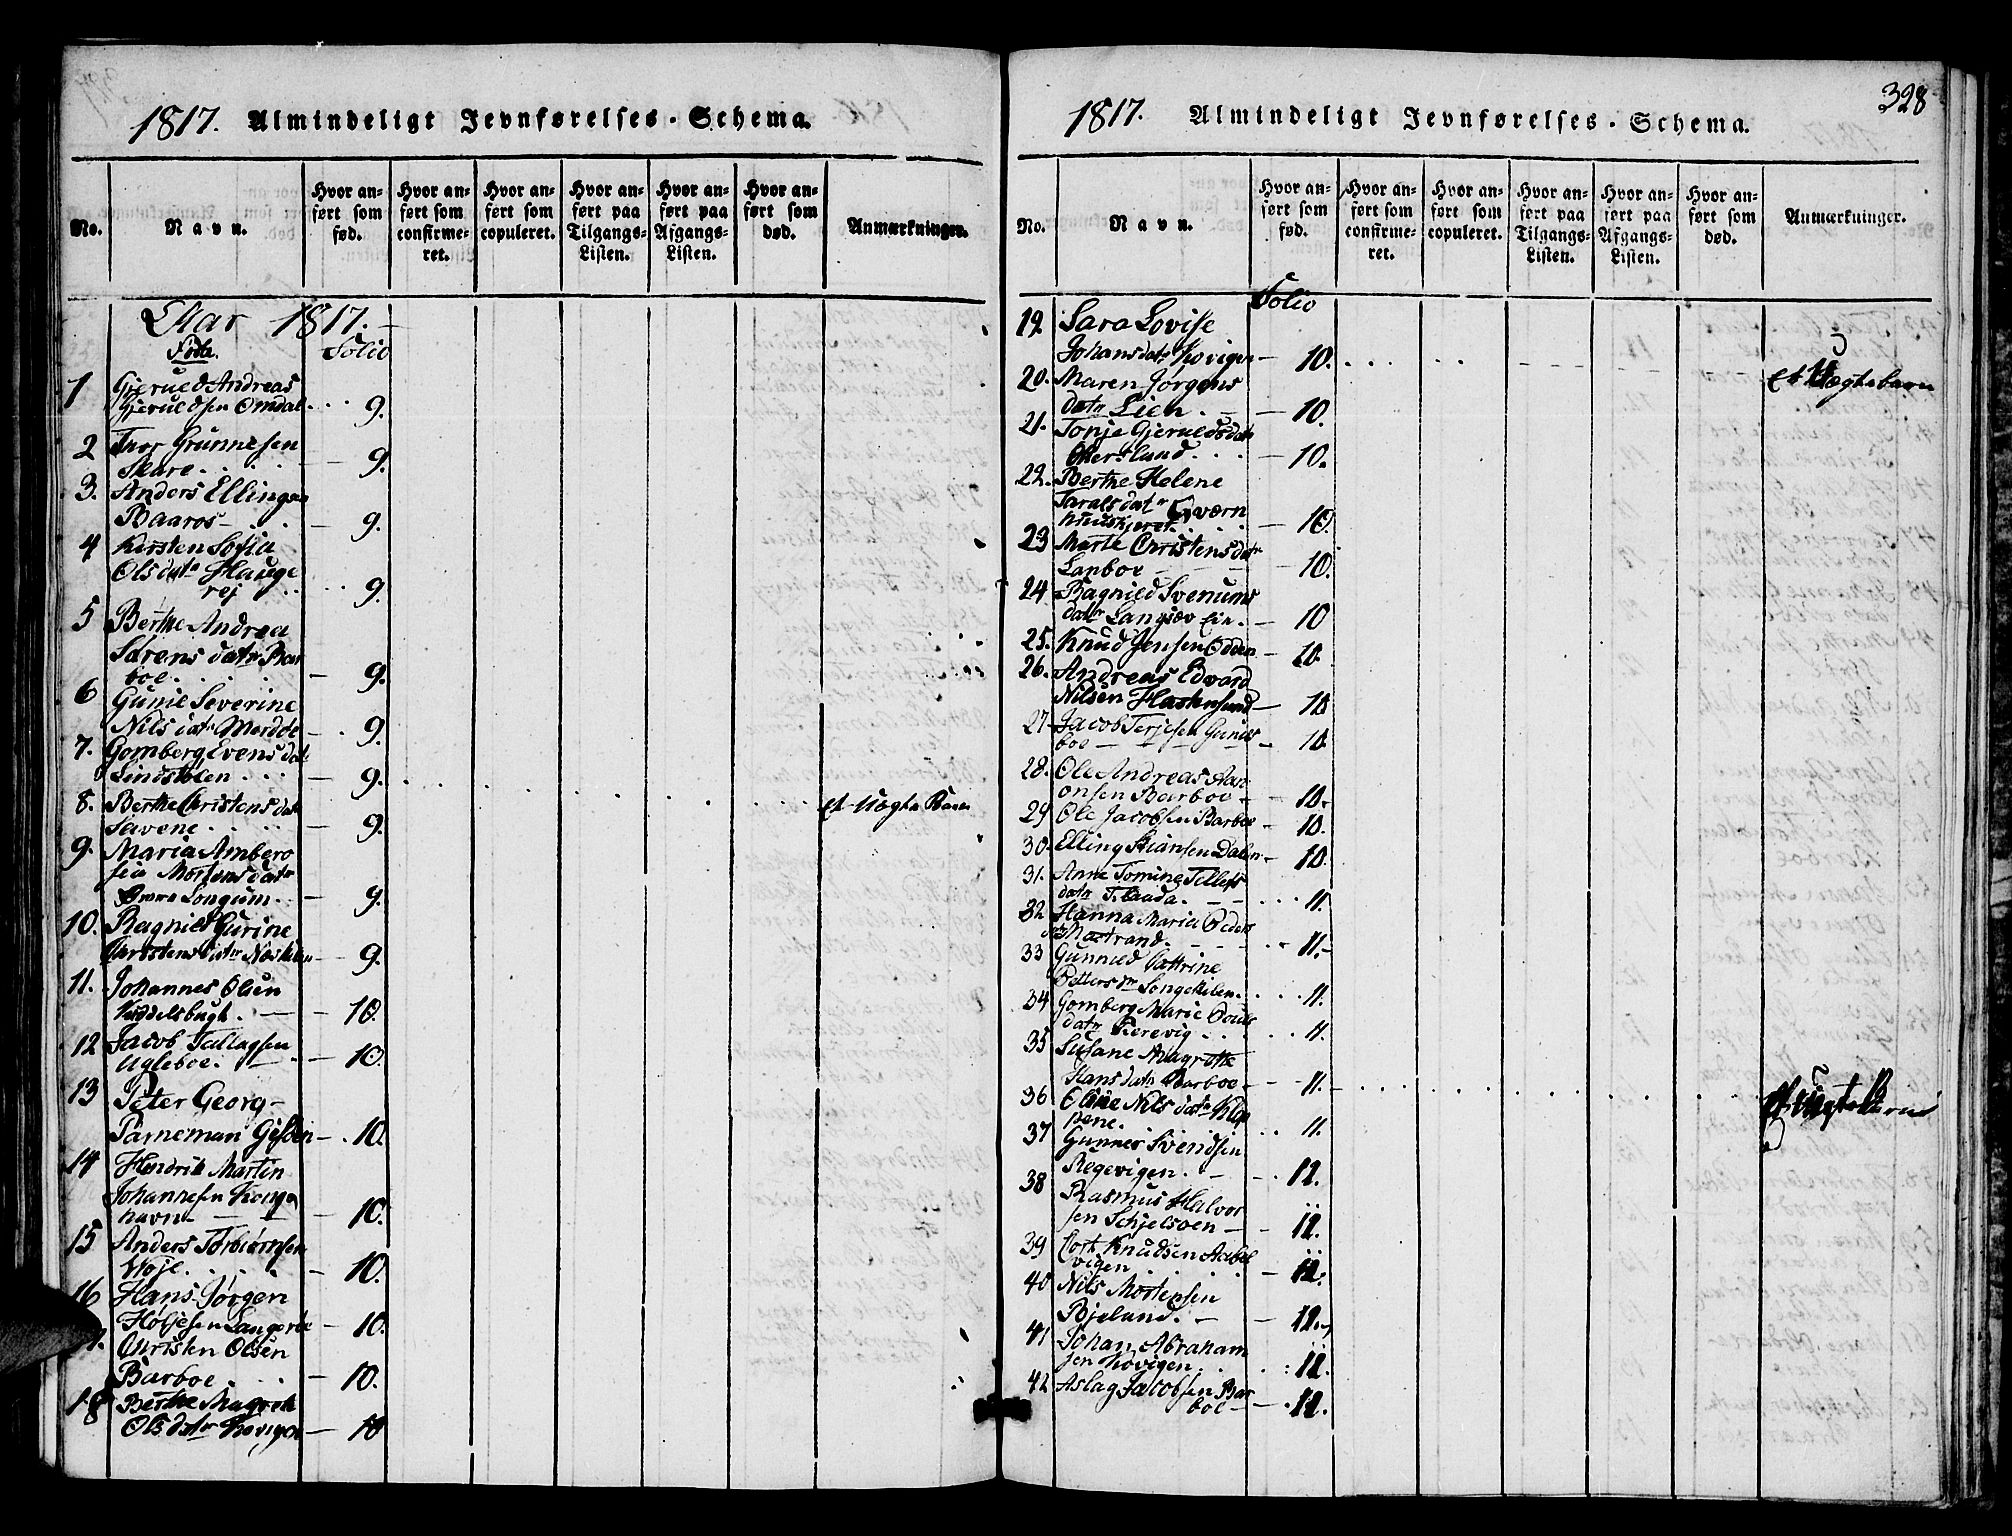 1817. Almindeligt Jevnførelses-Schema.
No.
Navn.
Hvor anført som fød.
Hvor anført som confirmeret.
Hvor anført som copuleret.
Hvor anført paa Tilgangs-Listen.
Hvor anført paa Afgangs-Listen.
Hvor anført som død.
Anmærkninger.
Aar 1817.
Føde. Folio
1 Gjerued Andreas
Gjeruedsen Omdal 9.
2 Tnor Gunnesen
Skare 9.
3. Anders Ellingsen
Baaros 9.
4 Kirsten Sofia
Olsdatr Hauge
rej 9.
5 Berthe Andrea
Sørens datr Bar
boe 9.
6 Gunild Severine
Nils datr Merdøe 9.
7. Gomberg Evens dat
Lindstølen 9.
8. Berthe Christens dat
Savene 9. et uægte Barn
9. Maria Ambero
sia Mortens datr
Longum 9.
10. Ragnild Gurine
Christens datr Neskilen 9.
11. Johannes Olsen
Kiddelsbugt. 10.
12 Jacob Tallagsen
Ugleboe. 10.
13 Peter Georg
Parneman 10.
14 Hendrik Martin
Johannesen Konge
havn 10.
15 Anders Torbiørnsen
Woje 10.
16 Hans Jørgen
Høljesen Langerøe 10.
Christen Olsen
Barboe 10.
18 Berthe Magrete
Olsdatr Kovigen 10
328
1817. Almindeligt Jevnførelses-Schema.
No.
Navn.
Hvor anført som fød.
Hvor anført som confirmeret.
Hvor anført som copuleret.
Hvor anført paa Tilgangs-Listen.
Hvor anført paa Afgangs-Listen.
Hvor anført som død.
Anmærkninger.
Folio
19 Sara Lovise
Johansdatr Kovigen 10. et Uægte barn
20. Maren Jørgens
datr Lien 10.
21. Tonje Gjerueds dat
Østerslund 10.
22. Berthe Helene
Taralsdatr Qværn
huuskjeret 10.
23 Marte Christensdatr
Lanboe 10.
24 Ragnild Svenums
datr Langsæv Eie. 10
25. Knud Jensen Odden 10.
26. Andreas Edvard
Nilsen Hastensund 10
27 Jacob Terjesen Gunders
boe 10
28. Ole Andreas Aan
onsen Barboe 10.
29 Ole Jacobsen Barboe 10.
30. Elling Kiansen Dalen 10.
31. Anne Tomine Tellefs
datr Flaada. 11.
32 Hanna Maria Peders
datr Mastrand. 11.
33 Gunnild Cattrine
Petters dr Songekilen 11.
34 Gomberg Marie Pouls
datr Kierevig 11.
35 Susane Magrette
Hansdatr Barboe 11. et uægte Barn
36 Oline Nils datr Klop
pene. 11.
37 Gunner Svendsen
Regevigen. 11.
38 Rasmus Halvor
sen Schjelsøen 11.
39 Cort Knudsen Aabel
vigen 11.
40 Nils Mortensen
Bjelland. 11.
41 Johan Abraham
sen Kovigen. 11.
42 Aslag Jacobsen Bar
boe 11.